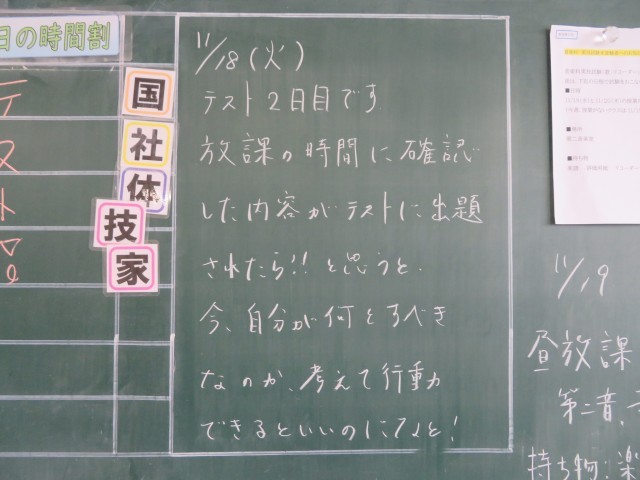 日の時間割
テスト
国
社
体
技
家
11/18(火)
テスト2日目です
放課の時間に確認
した内容がテストに出題
されたら!!と思うと、
今、自分が何をすべき
なのか、考えて行動
できるといいのになと!
11/19
昼放課
第二音、
持ち物:楽